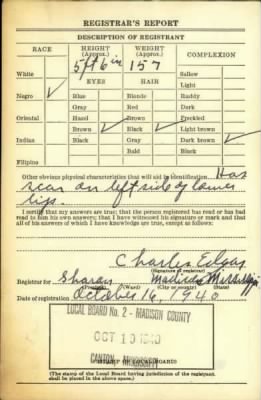 REGISTRAR'S REPORT
DESCRIPTION OF REGISTRANT
RACE
HEIGHT
(Approx.)
WEIGHT
(Approx.)
COMPLEXION
5 ft 6 in
157
White
Sallow
EYES
HAIR
Light
Negro ✓
Blue
Blonde
Ruddy
Gray
Red
Dark
Oriental
Hazel
Brown
Freckled
Brown ✓
Black ✓
Light brown
Indian
Black
Gray
Dark brown ✓
Bald
Black
Filipino
Other obvious physical characteristics that will aid in identification Has
scar on left side of lower
lip.
I certify that my answers are true; that the person registered has read or has had
read to him his own answers; that I have witnessed his signature or mark and that
all of his answers of which I have knowledge are true, except as follows:
Charles Edgar
(Signature of registrar)
Registrar for Sharon Madison Mississippi
(Precinct) (Ward) (City or county) (State)
Date of registration October 16, 1940
LOCAL BOARD No. 2 - MADISON COUNTY
OCT 1940
CANTON, MISSISSIPPI
(STAMP OF LOCAL BOARD)
(The stamp of the Local Board having jurisdiction of the registrant
shall be placed in the above space.)